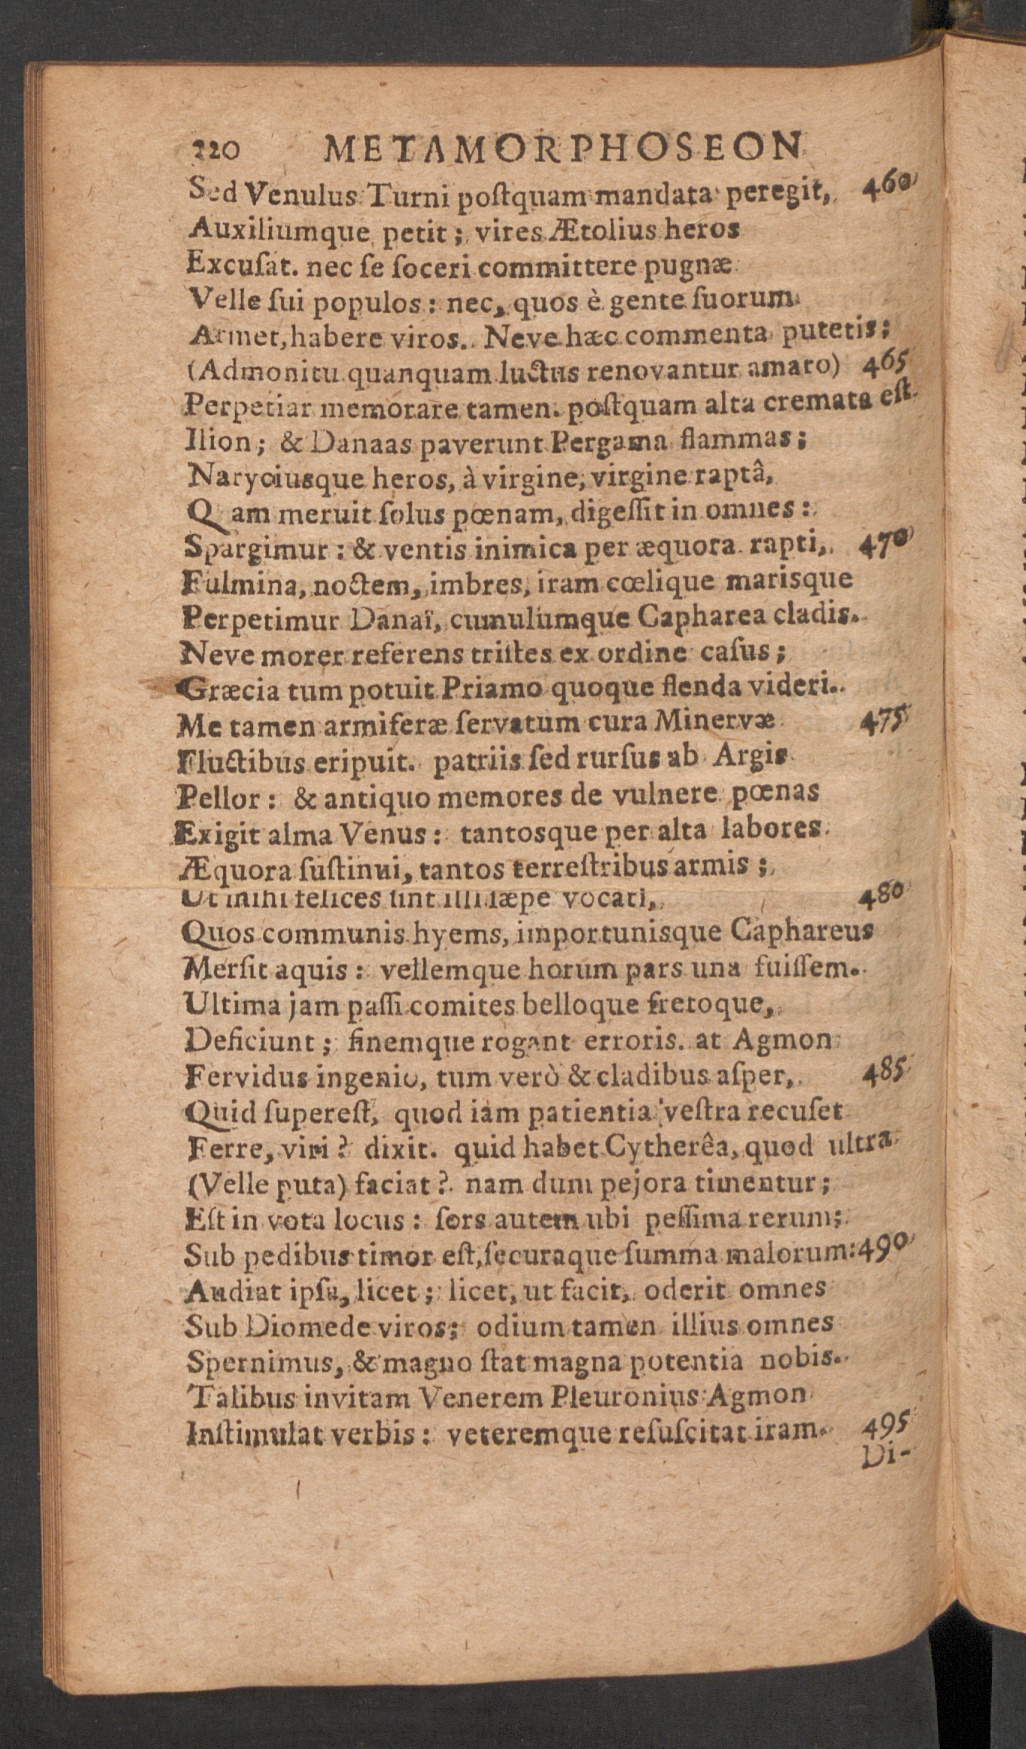 220 METAMORPHOSEON
Sed Venulus Turni poſtquam mandata peregit, 460
Auxiliumque petit; vires Ætolius heros
Excuſat. nec ſe ſoceri committere pugnæ
Velle ſui populos: nec, quos è gente ſuorum
Armet, habere viros. Neve hæc commenta putetis;
(Admonitu quanquam luctus renovantur amaro) 465
Perpetiar memorare tamen. poſtquam alta cremata eſt
Ilion; & Danaas paverunt Pergama flammas;
Naryciusque heros, à virgine, virgine raptâ,
Q am meruit ſolus pœnam, digeſſit in omnes:
Spargimur: & ventis inimica per æquora rapti, 470
Fulmina, noctem, imbres, iram cœlique marisque
Perpetimur Danaï, cumulumque Capharea cladis.
Neve morer referens triſtes ex ordine caſus;
Græcia tum potuit Priamo quoque flenda videri.
Me tamen armiferæ ſervatum cura Minervæ 475
Fluctibus eripuit. patriis ſed rurſus ab Argis
Pellor: & antiquo memores de vulnere pœnas
Exigit alma Venus: tantosque per alta labores
Æquora ſuſtinui, tantos terreſtribus armis;
Ut mihi felices ſint illi ſæpe vocati, 480
Quos communis hyems, importunisque Caphareus
Merſit aquis: vellemque horum pars una fuiſſem.
Ultima jam paſſi comites belloque fretoque,
Deficiunt; finemque rogant erroris. at Agmon
Fervidus ingenio, tum verò & cladibus aſper, 485
Quid ſupereſt, quod iam patientia veſtra recuſet
Ferre, viri? dixit. quid habet Cytherêa, quod ultra
(Velle puta) faciat? nam dum pejora timentur;
Eſt in vota locus: ſors autem ubi peſſima rerum;
Sub pedibus timor eſt, ſecuraque ſumma malorum: 490
Audiat ipſa, licet; licet, ut facit, oderit omnes
Sub Diomede viros; odium tamen illius omnes
Spernimus, & magno ſtat magna potentia nobis.
Talibus invitam Venerem Pleuronius Agmon
Inſtimulat verbis: veteremque reſuſcitat iram. 495
Di-